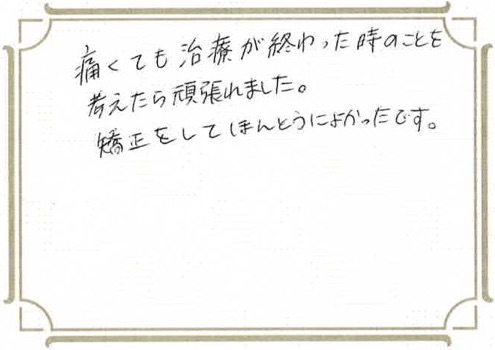 痛くても治療が終わった時のことを
考えたら頑張れました。
矯正をしてほんとうによかったです。